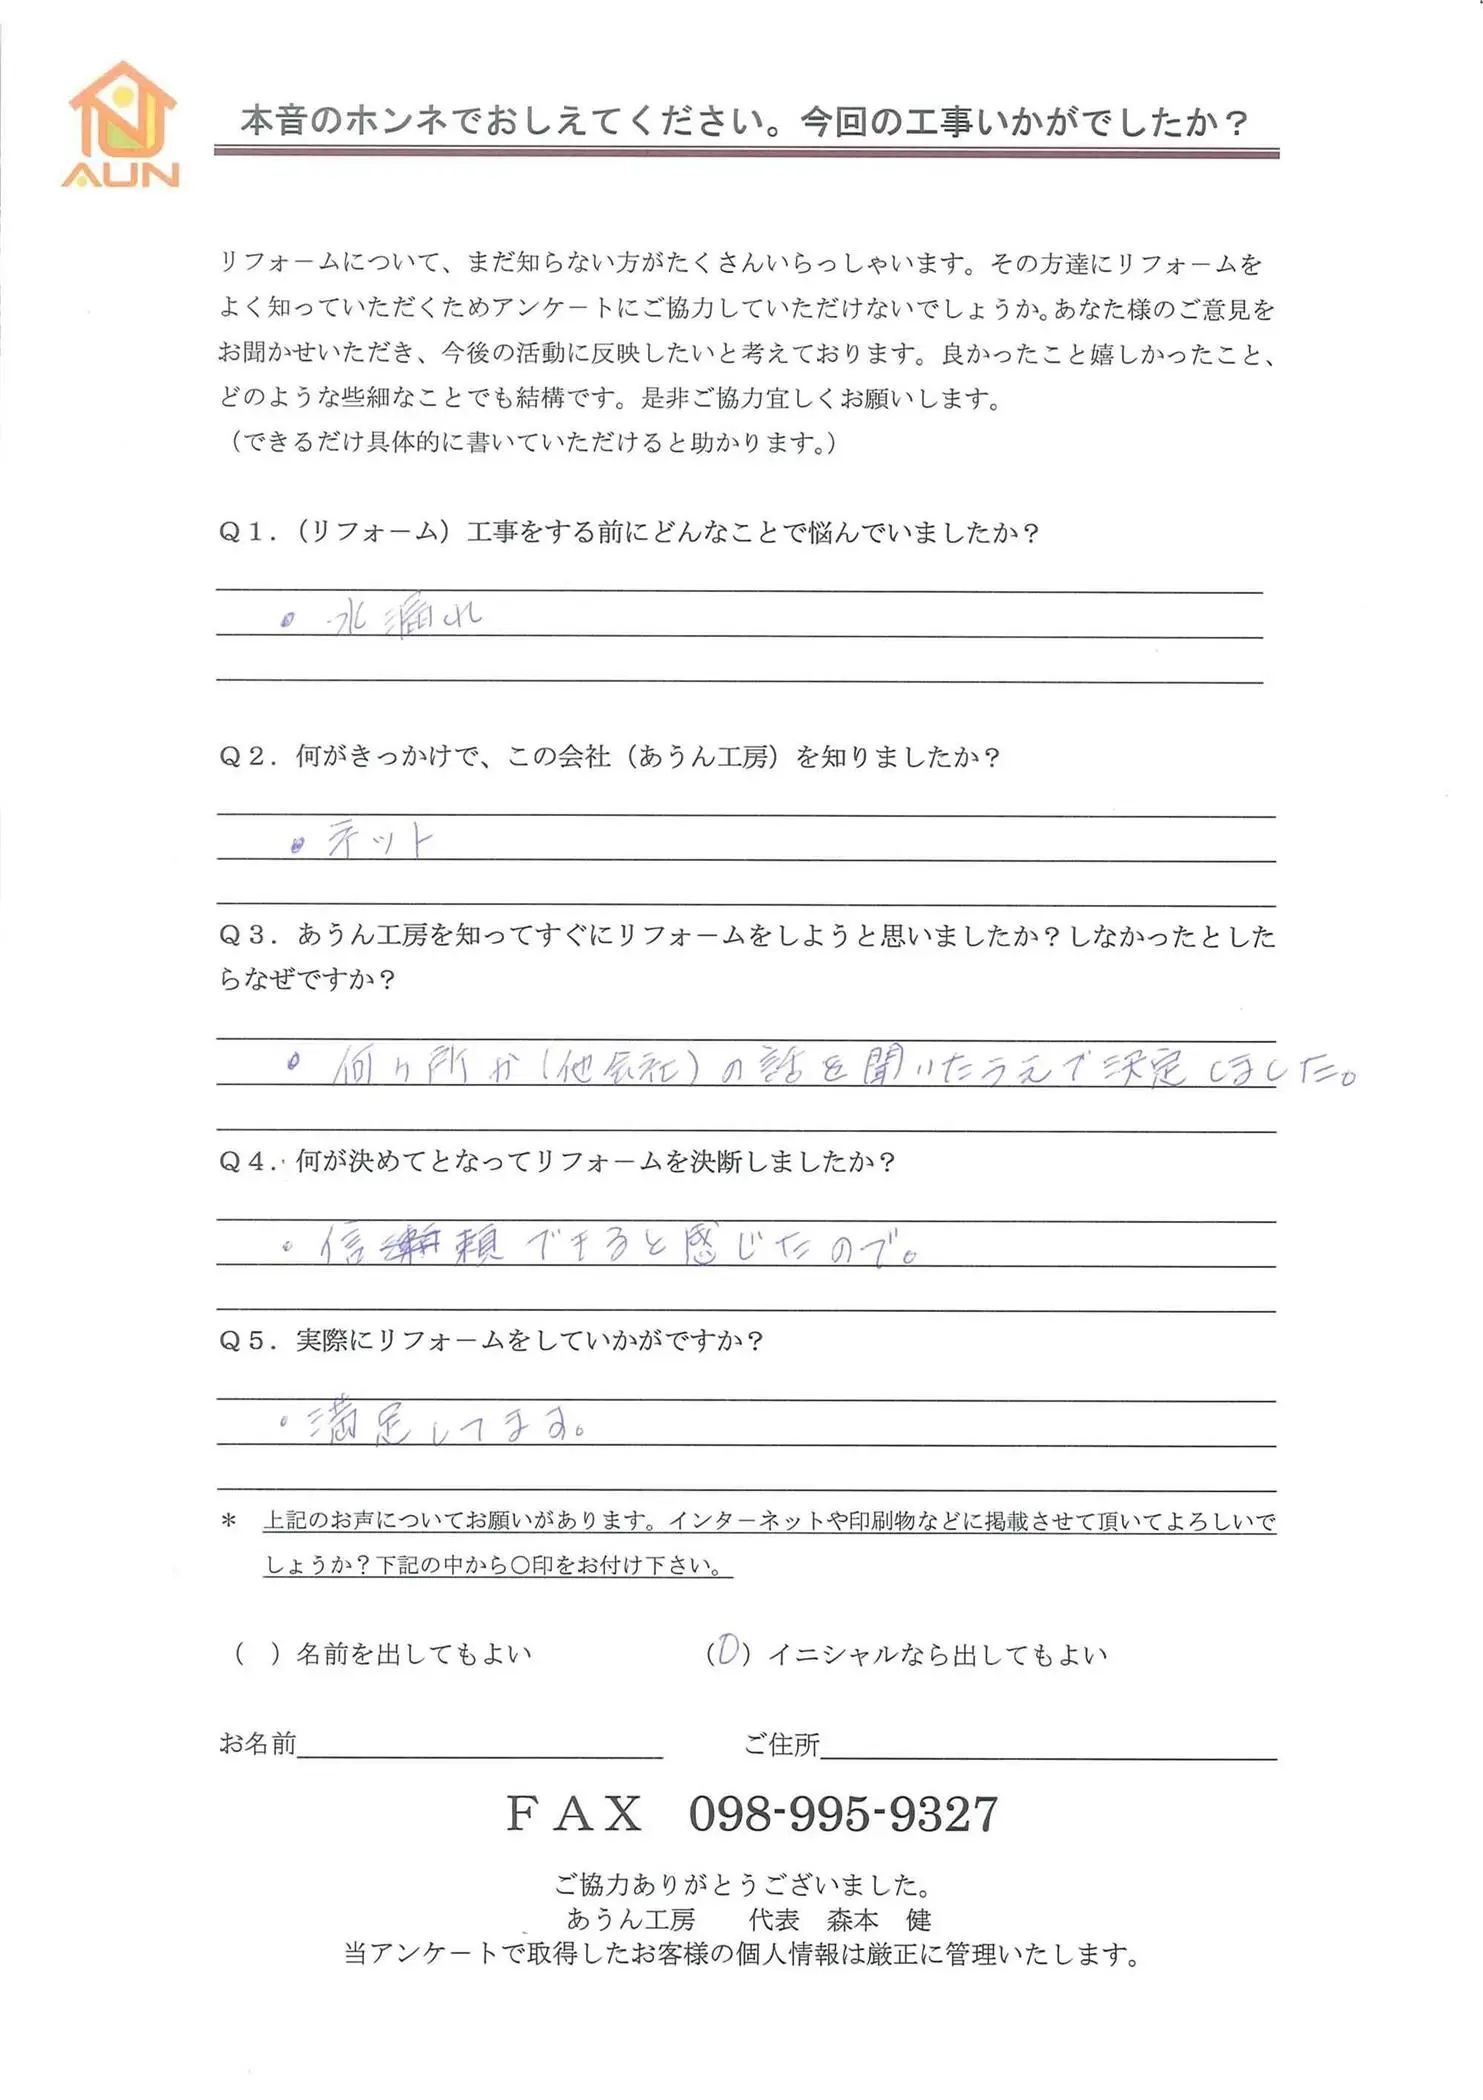 AUN
本音のホンネでおしえてください。今回の工事いかがでしたか？
リフォームについて、まだ知らない方がたくさんいらっしゃいます。その方達にリフォームを
よく知っていただくためアンケートにご協力していただけないでしょうか。あなた様のご意見を
お聞かせいただき、今後の活動に反映したいと考えております。良かったこと嬉しかったこと、
どのような些細なことでも結構です。是非ご協力宜しくお願いします。
（できるだけ具体的に書いていただけると助かります。）
Ｑ１．（リフォーム）工事をする前にどんなことで悩んでいましたか？
・水漏れ
Ｑ２．何がきっかけで、この会社（あうん工房）を知りましたか？
・ネット
Ｑ３．あうん工房を知ってすぐにリフォームをしようと思いましたか？しなかったとした
らなぜですか？
・何ヶ所か（他会社）の話を聞いたうえで決定しました。
Ｑ４．何が決めてとなってリフォームを決断しましたか？
・信頼できると感じたので。
Ｑ５．実際にリフォームをしていかがですか？
・満足してます。
＊　上記のお声についてお願いがあります。インターネットや印刷物などに掲載させて頂いてよろしいで
しょうか？下記の中から〇印をお付け下さい。
（　）名前を出してもよい　（○）イニシャルなら出してもよい
お名前　ご住所
ＦＡＸ　098-995-9327
ご協力ありがとうございました。
あうん工房　　代表　森本　健
当アンケートで取得したお客様の個人情報は厳正に管理いたします。